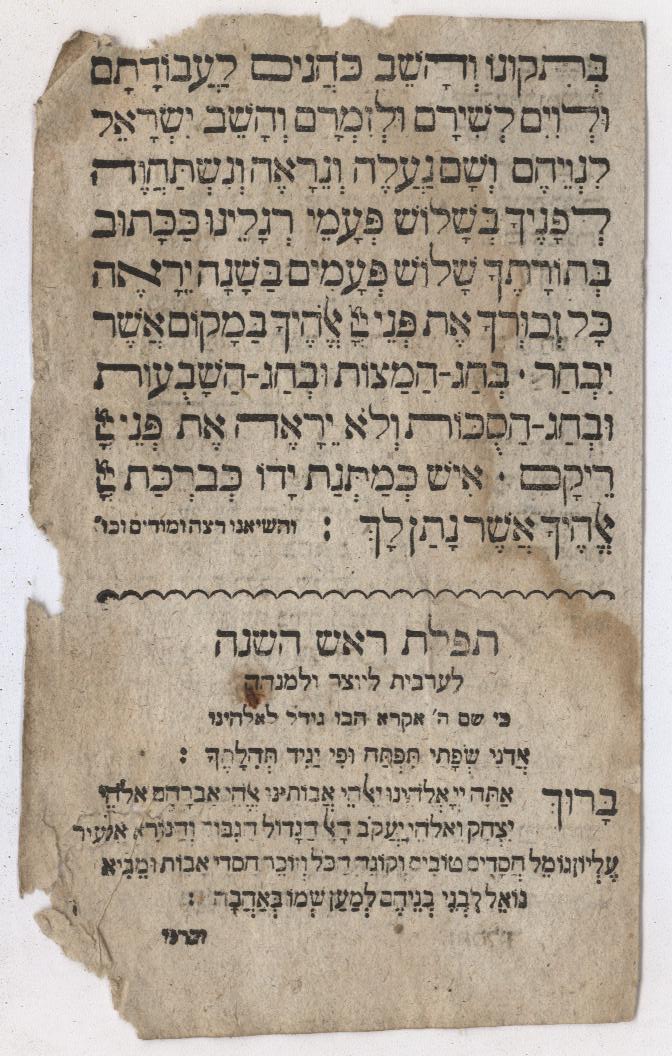 בְּתִקּוּנוֹ וְהָשֵׁב כֹּהֲנִים לַעֲבוֹדָתָם
וּלְוִיִּם לְשִׁירָם וּלְזִמְרָם וְהָשֵׁב יִשְׂרָאֵל
לִנְוֵיהֶם וְשָׁם נַעֲלֶה וְנֵרָאֶה וְנִשְׁתַּחֲוֶה
לְפָנֶיךָ בְּשָׁלוֹשׁ פַּעֲמֵי רְגָלֵינוּ כַּכָּתוּב
בְּתוֹרָתֶךָ שָׁלוֹשׁ פְּעָמִים בַּשָּׁנָה יֵרָאֶה
כָּל זְכוּרְךָ אֶת פְּנֵי יְיָ אֱלֹהֶיךָ בַּמָּקוֹם אֲשֶׁר
יִבְחַר · בְּחַג-הַמַּצּוֹת וּבְחַג-הַשָּׁבֻעוֹת
וּבְחַג-הַסֻּכּוֹת וְלֹא יֵרָאֶה אֶת פְּנֵי יְיָ
רֵיקָם · אִישׁ כְּמַתְּנַת יָדוֹ כְּבִרְכַּת יְיָ
אֱלֹהֶיךָ אֲשֶׁר נָתַן לָךְ : והשיאנו רצה ומודים וכו'
תפלת ראש השנה
לערבית ליוצר ולמנחה
כי שם ה' אקרא הבו גודל לאלהינו
אֲדֹנָי שְׂפָתַי תִּפְתָּח וּפִי יַגִּיד תְּהִלָּתֶךָ :
בָּרוּךְ אַתָּה יְיָ אֱלֹהֵינוּ וֵאלֹהֵי אֲבוֹתֵינוּ אֱלֹהֵי אַבְרָהָם אלהי
יִצְחָק וֵאלֹהֵי יַעֲקֹב הָאֵל הַגָּדוֹל הַגִּבּוֹר וְהַנּוֹרָא
עֶלְיוֹן גּוֹמֵל חֲסָדִים טוֹבִים וְקוֹנֵה הַכֹּל וְזוֹכֵר חַסְדֵי אָבוֹת וּמֵבִיא
גוֹאֵל לִבְנֵי בְנֵיהֶם לְמַעַן שְׁמוֹ בְּאַהֲבָה :
זכרנו